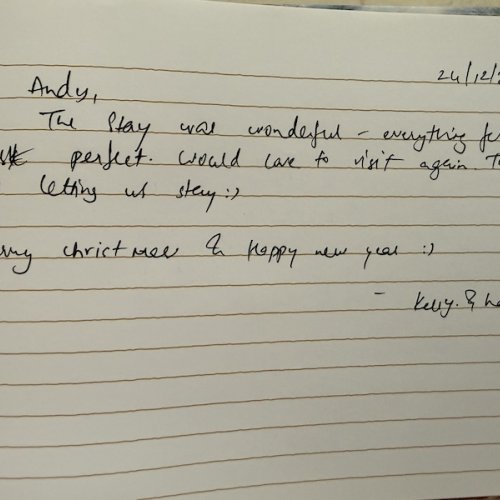 24/12/
Andy,
The stay was wonderful - everything
perfect. Would love to visit again.
letting us stay :)
christmas & Happy new year :)
- Kelly &